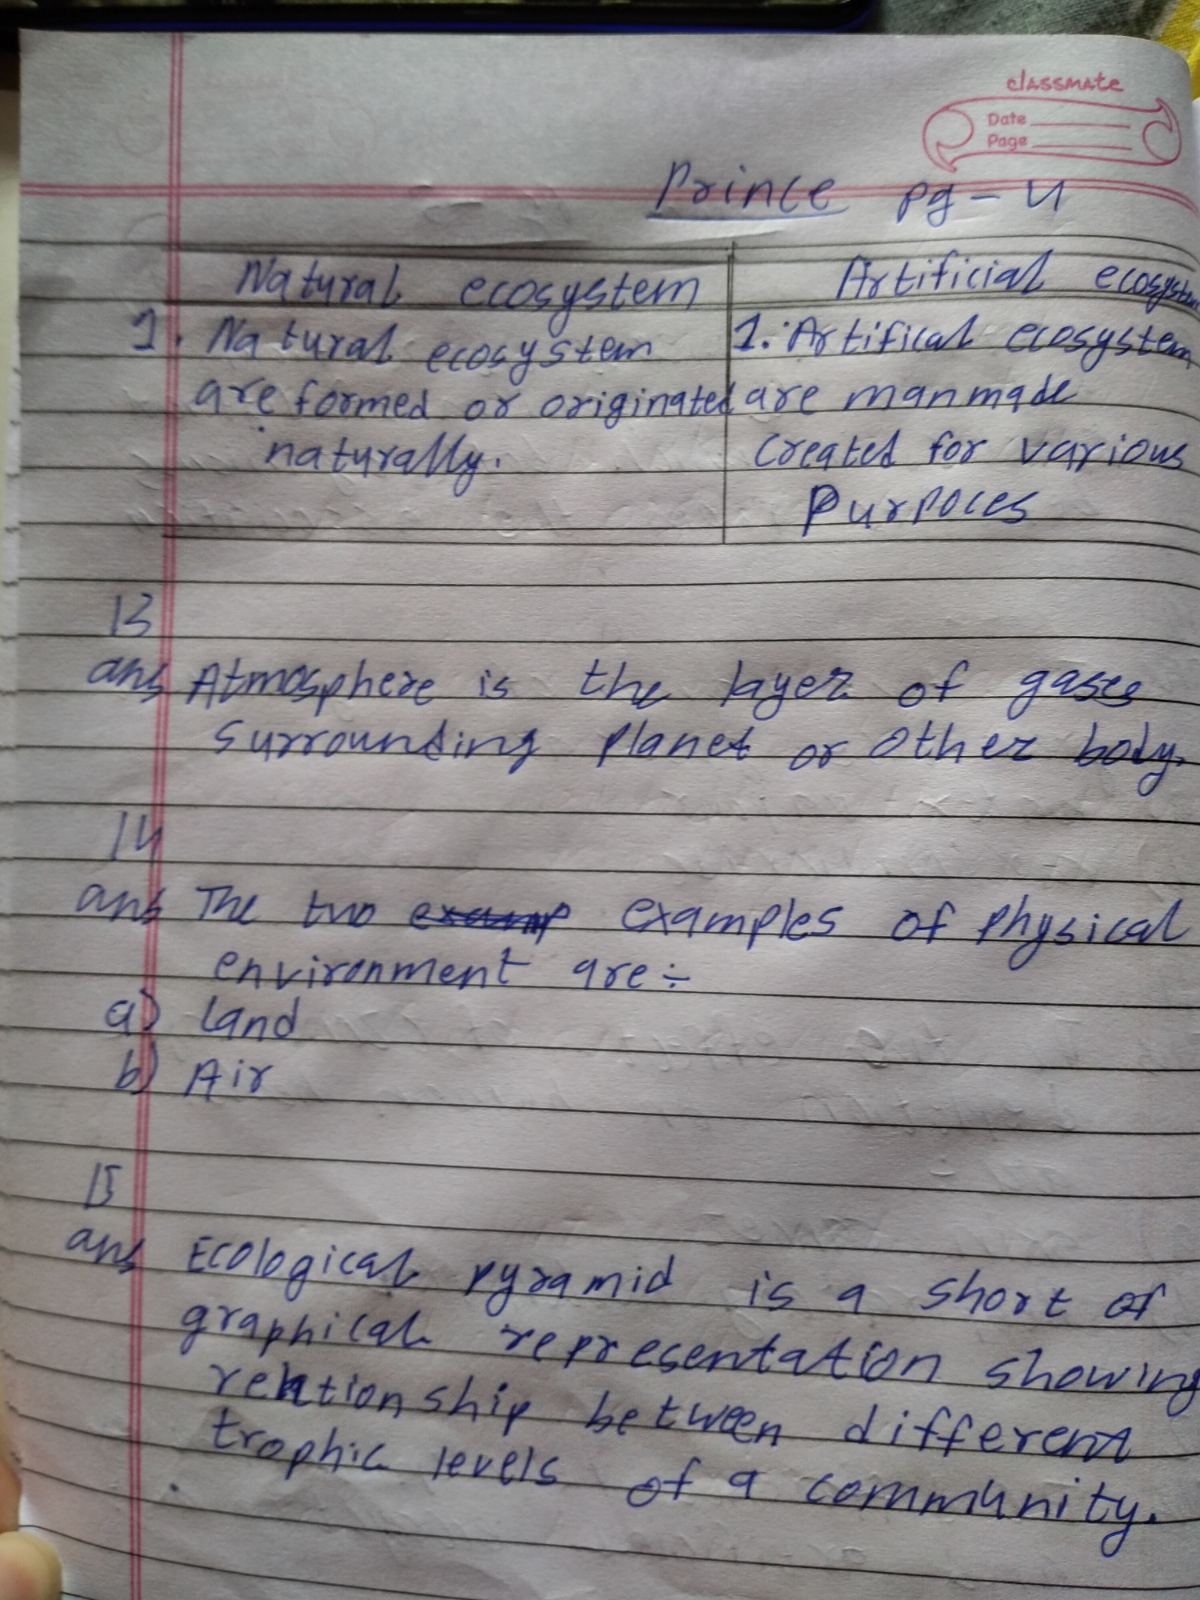 classmate
Date
Page
Prince pg-4
Natural ecosystem
Artificial ecosystem
1. Natural ecosystem
are formed or originated
naturally.
1. Artifical ecosystem
are manmade
created for various
purpoces
13
ans Atmosphere is the layer of gases
surrounding planet or other body.
14
ans The two examples of physical
environment are ÷
a) Land
b) Air
15
ans Ecological pyramid is a short of
graphical representation showing
relationship between different
trophic levels of a community.